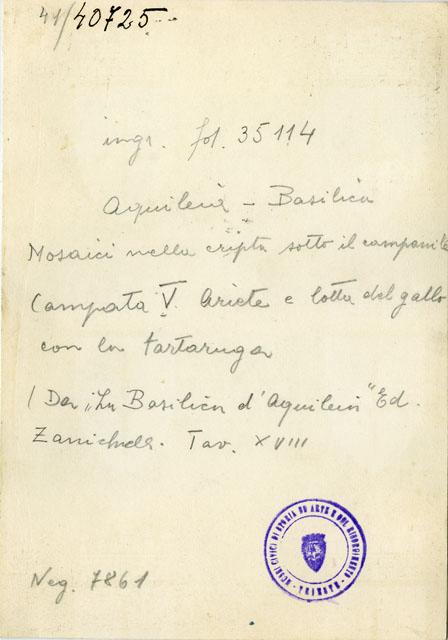 41/40725
ingr. fol. 35114
Aquileia - Basilica
Mosaici nella cripta sotto il campanile
Campata V. Ariete e lotta del gallo
con la tartaruga
(Da "La Basilica d'Aquileia" Ed.
Zanichelli. Tav. XVIII
MUSEI CIVICI DI STORIA ED ARTE E DEL RISORGIMENTO
- TRIESTE -
Neg. 7861